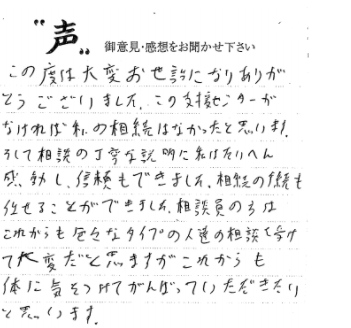 "声"
御意見・感想をお聞かせ下さい
この度は大変お世話になりありが
とうございました。この支援センターが
なければ私の相続はなかったと思います。
そして相談の丁寧な説明に私はたいへん
感動し、信頼もできました。相続の手続も
任せることができました。相談員の方は
これからも色々なタイプの人達の相談を受け
て大変だと思ますがこれからも
体に気をつけてがんばっていただきたい
と思います。